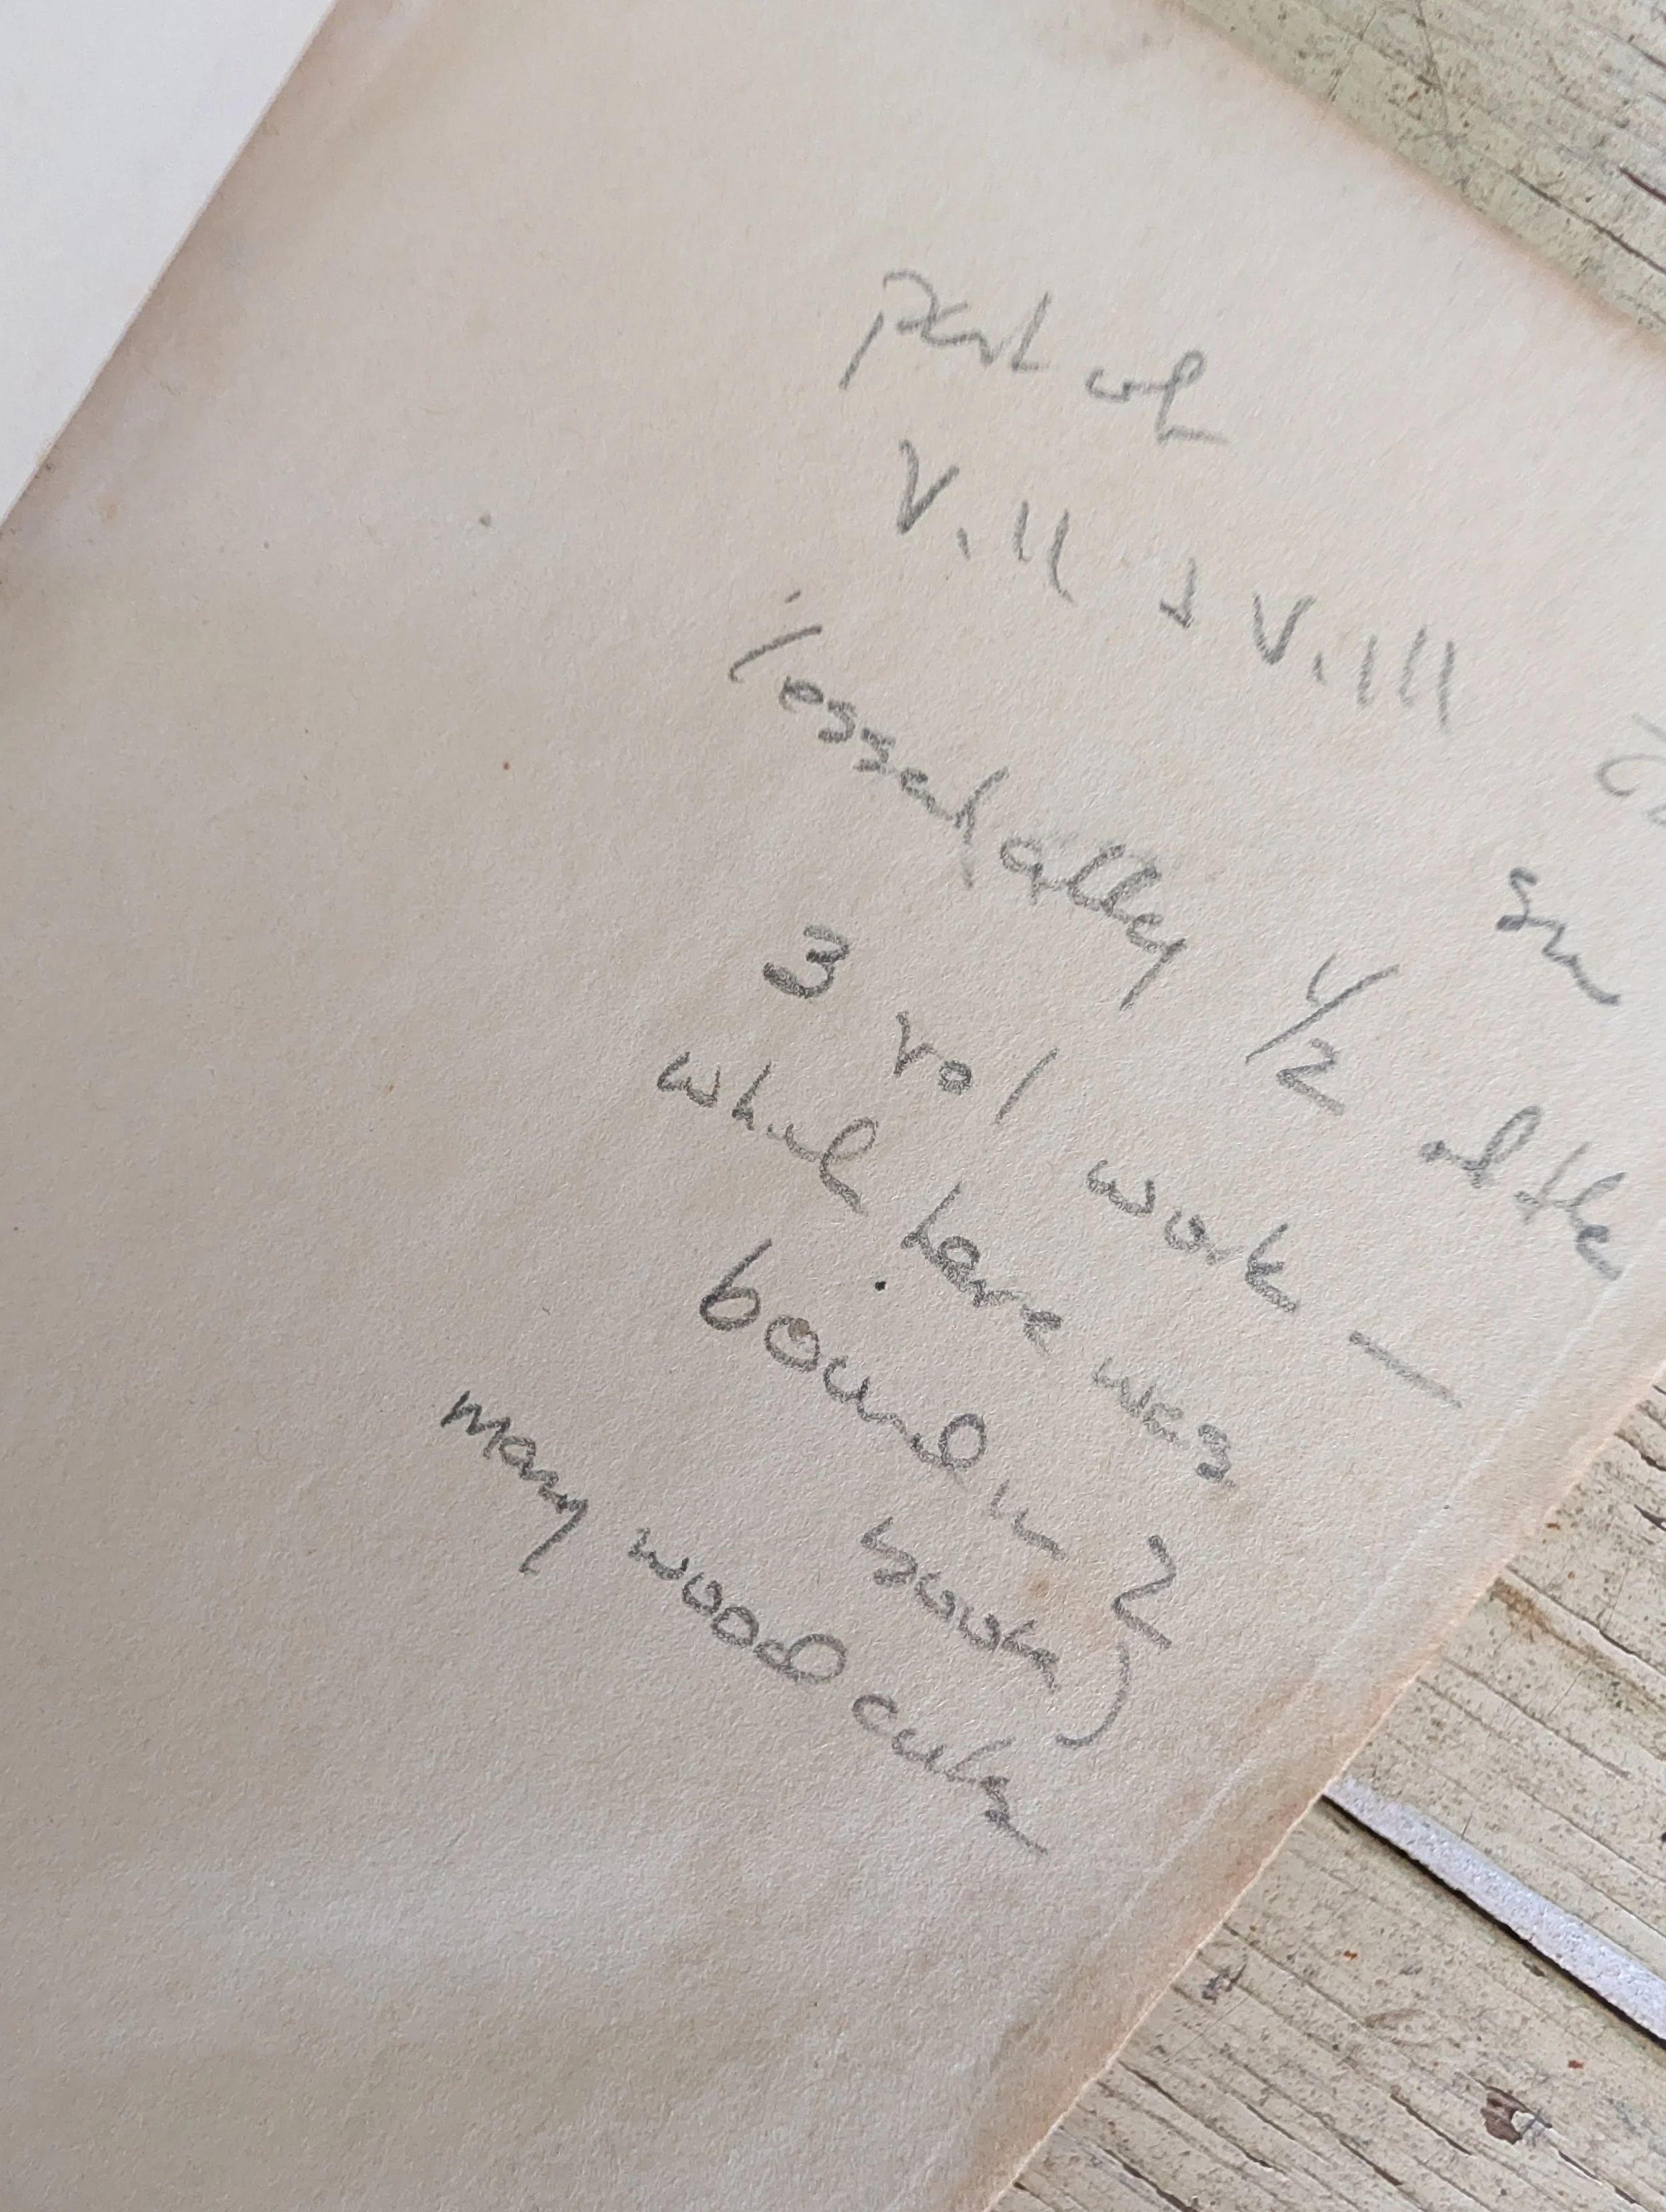 part of
V. II & V. III
(essentially 1/2 of the
3 vol work —
which here was
bound in 2
books)
many wood cuts